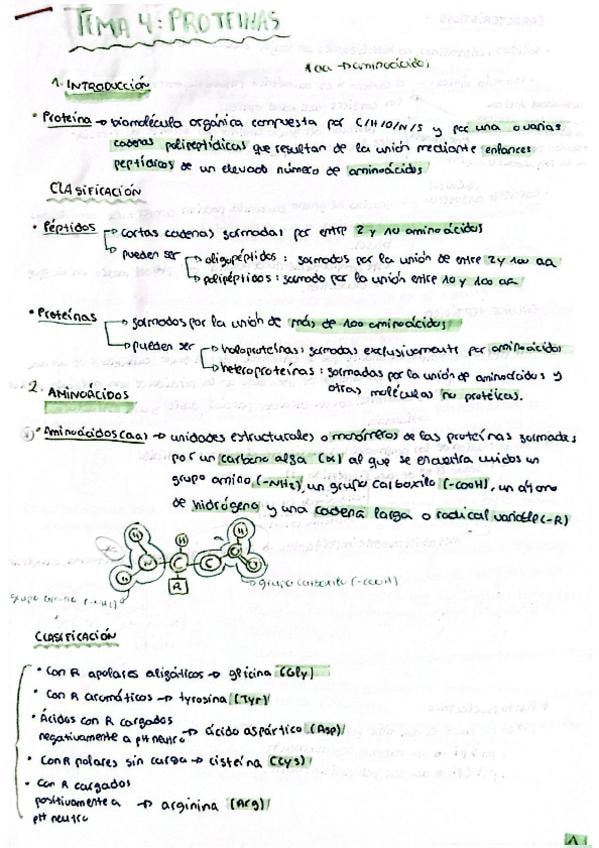 TEMA 4: PROTEINAS
1aa → aminoácido
1. INTRODUCCIÓN
• Proteína → biomolécula orgánica compuesta por C/H/O/N/S y por una o varias
cadenas polipeptídicas que resultan de la unión mediante enlances
peptídicos de un elevado número de aminoácidos
CLASIFICACIÓN
• Péptidos → cortas cadenas formadas por entre 2 y 10 aminoácidos
→ pueden ser → oligopéptidos: formados por la unión de entre 2 y 100 aa
→ polipéptidos: formado por la unión entre 10 y 100 aa
• Proteínas → formados por la unión de más de 100 aminoácidos
→ pueden ser → holoproteínas: formadas exclusivamente por aminoácidos
→ heteroproteínas: formadas por la unión de aminoácidos y
otras moléculas no protéicas.
2. AMINOÁCIDOS
• Aminoácidos (aa) → unidades estructurales o monómeros de las proteínas formadas
por un carbono alfa (α) al que se encuentra unidos un
grupo amino (-NH2), un grupo carboxilo (-COOH), un átomo
de hidrógeno y una cadena larga o radical variable (-R)
H H H
N C C O
H R O H
grupo amino (-NH2) grupo carboxilo (-COOH)
CLASIFICACIÓN
• Con R apolares alifáticos → glicina (Gly)
• Con R aromáticos → tyrosina (Tyr)
• Ácidos con R cargados
negativamente a pH neutro → ácido aspártico (Asp)
• Con R polares sin carga → cisteína (Cys)
• Con R cargados
positivamente a → arginina (Arg)
pH neutro
1